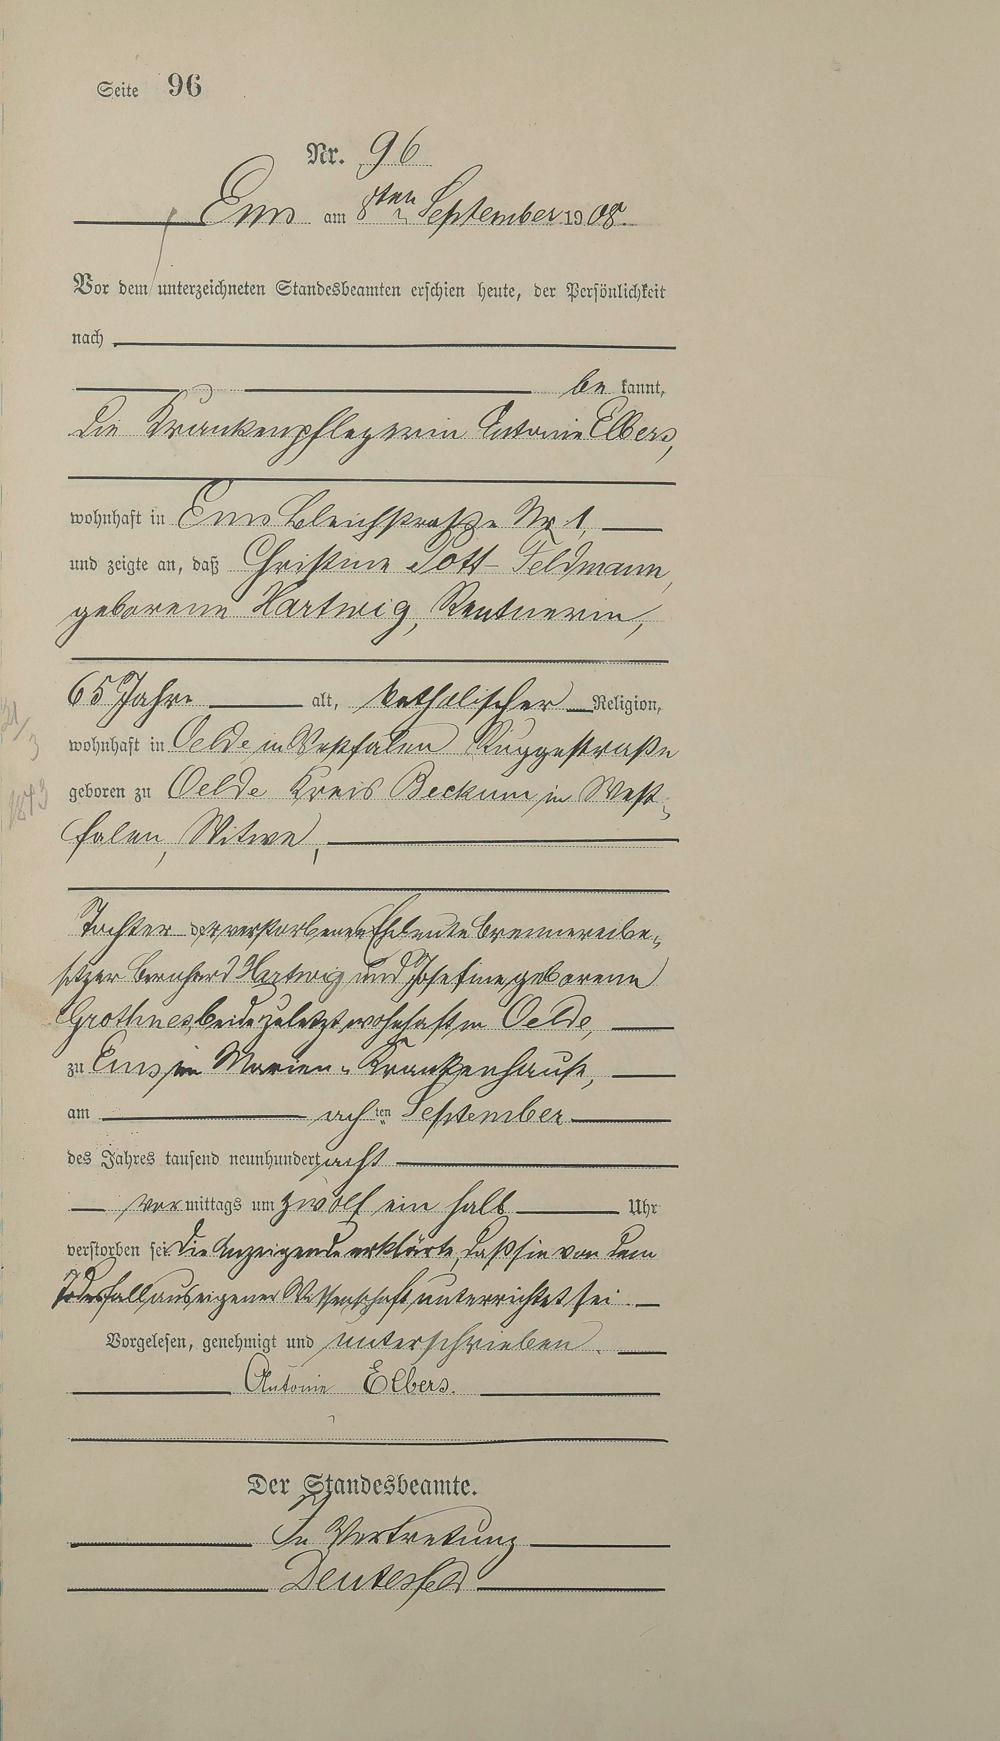 Seite 96
Nr. 96
Ems am 8ten September 1908.
Vor dem unterzeichneten Standesbeamten erschien heute, der Persönlichkeit
nach
be kannt,
die Krankenpflegerin Antonie Elbers,
wohnhaft in Ems Bleichstraße Nr 1,
und zeigte an, daß Christine Pott-Feldmann,
geborene Hartwig, Rentnerin,
65 Jahre alt, katholischer Religion,
wohnhaft in Oelde in Westfalen Ruggestraße
geboren zu Oelde Kreis Beckum in West-
falen, Witwe,
Tochter der verstorbenen Eheleute Brennereibe-
sitzer Bernhard Hartwig und Josefine geborene
Grothues, beide zuletzt wohnhaft in Oelde,
zu Ems im Marien-Krankenhause,
am achten September
des Jahres tausend neunhundert acht
vor mittags um zwölf ein halb Uhr
verstorben sei. Die Anzeigende erklärte, daß sie von dem
Todesfall aus eigener Wissenschaft unterrichtet sei.
Vorgelesen, genehmigt und unterschrieben.
Antonie Elbers.
Der Standesbeamte.
In Vertretung